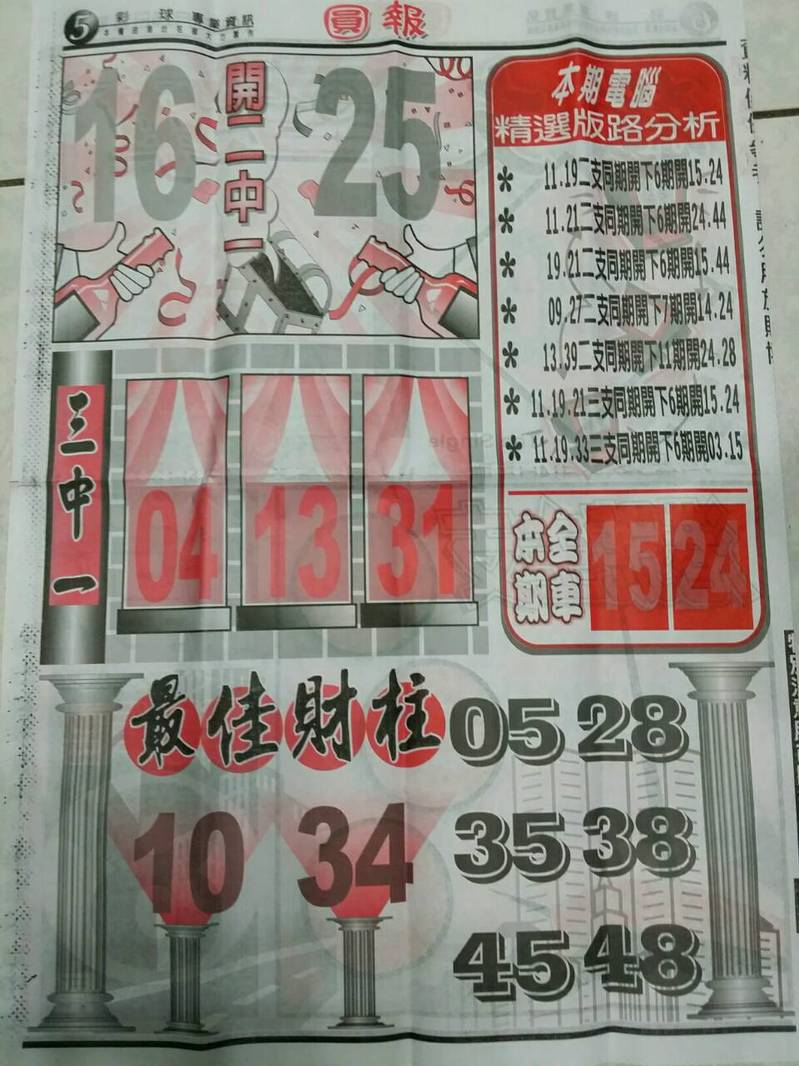 5 彩球專業資訊
圓報
16
開二中一
25
三中一
04 13 31
本期電腦
精選版路分析
* 11.19二支同期開下6期開15.24
* 11.21二支同期開下6期開24.44
* 19.21二支同期開下6期開15.44
* 09.27二支同期開下7期開14.24
* 13.39二支同期開下11期開24.28
* 11.19.21三支同期開下6期開15.24
* 11.19.33三支同期開下6期開03.15
本期
全車
15 24
最佳財柱
10 34
05 28
35 38
45 48